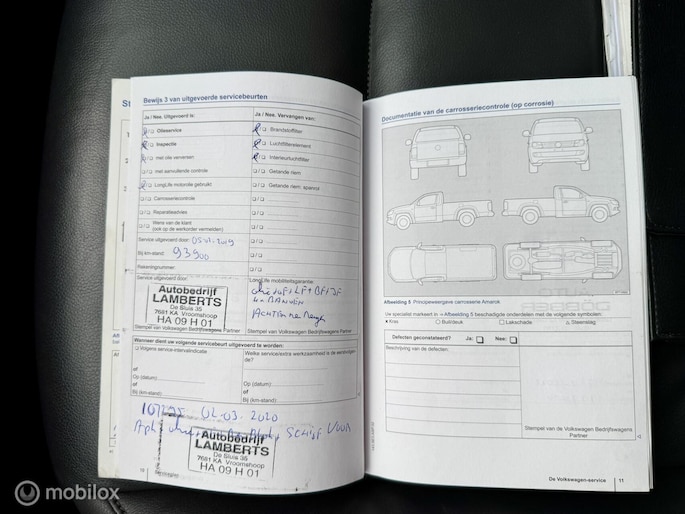 St
Bewijs 3 van uitgevoerde servicebeurten
Ja / Nee. Uitgevoerd is:
Ja / Nee. Vervangen van:
Olieservice
Brandstoffilter
Inspectie
Luchtfilterelement
met olie verversen
Interieurluchtfilter
met aanvullende controle
Getande riem
LongLife motorolie gebruikt
Getande riem: spanrol
Carrosseriecontrole
Reparatieadvies
Wens van de klant
(ook op de werkorder vermelden)
Service uitgevoerd door:
Bij km-stand: 93900
Rekeningnummer:
Service uitgevoerd door:
LongLife mobiliteitsgarantie:
Autobedrijf
LAMBERTS
De Sluis 35
7681 KA Vroomshoop
HA 09 H 01
Stempel van Volkswagen Bedrijfswagens Partner
Stempel van Volkswagen Bedrijfswagens Partner
Wanneer dient uw volgende servicebeurt uitgevoerd te worden:
Volgens service-intervalindicatie
of
Op (datum):
of
Bij (km-stand):
Welke service/extra werkzaamheid is de eerstvolgende?
Op (datum):
of
Bij (km-stand):
107295 02-03-2020
SCHIJF VOOR
Autobedrijf
LAMBERTS
De Sluis 35
7681 KA Vroomshoop
HA 09 H 01
10
Documentatie van de carrosseriecontrole (op corrosie)
Afbeelding 5 Principeweergave carrosserie Amarok.
Uw specialist markeert in Afbeelding 5 beschadigde onderdelen met de volgende symbolen:
× Kras
○ Buil/deuk
□ Lakschade
△ Steenslag
Defecten geconstateerd? Ja: Nee:
Beschrijving van de defecten:
Stempel van de Volkswagen Bedrijfswagens Partner
De Volkswagen-service 11
mobilox